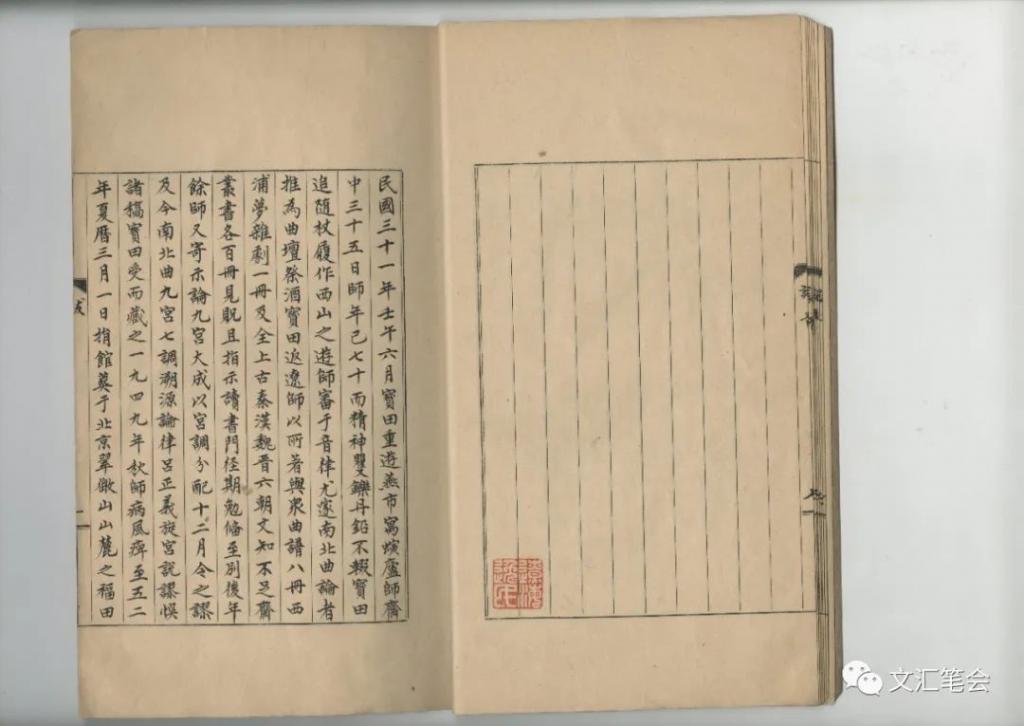 民國三十一年壬午六月寳田重遊燕市寓螾廬師齋
中三十五日師年已七十而精神矍鑠丹鉛不輟寳田
追隨杖履作西山之遊師審于音律尤邃南北曲論者
推為曲壇祭酒寳田返遼師以所著與衆曲譜八冊西
浦夢雜劇一冊及全上古秦漢魏晋六朝文知不足齋
叢書各百冊見貺且指示讀書門徑期勉備至別後年
餘師又寄示論九宮大成以宮調分配十二月令之謬
及今南北曲九宮七調溯源論律呂正義旋宮說謬悞
諸稿寳田受而藏之一九四九年秋師病風痹至五二
年夏曆三月一日捐館葬于北京翠微山山麓之福田
文汇笔会